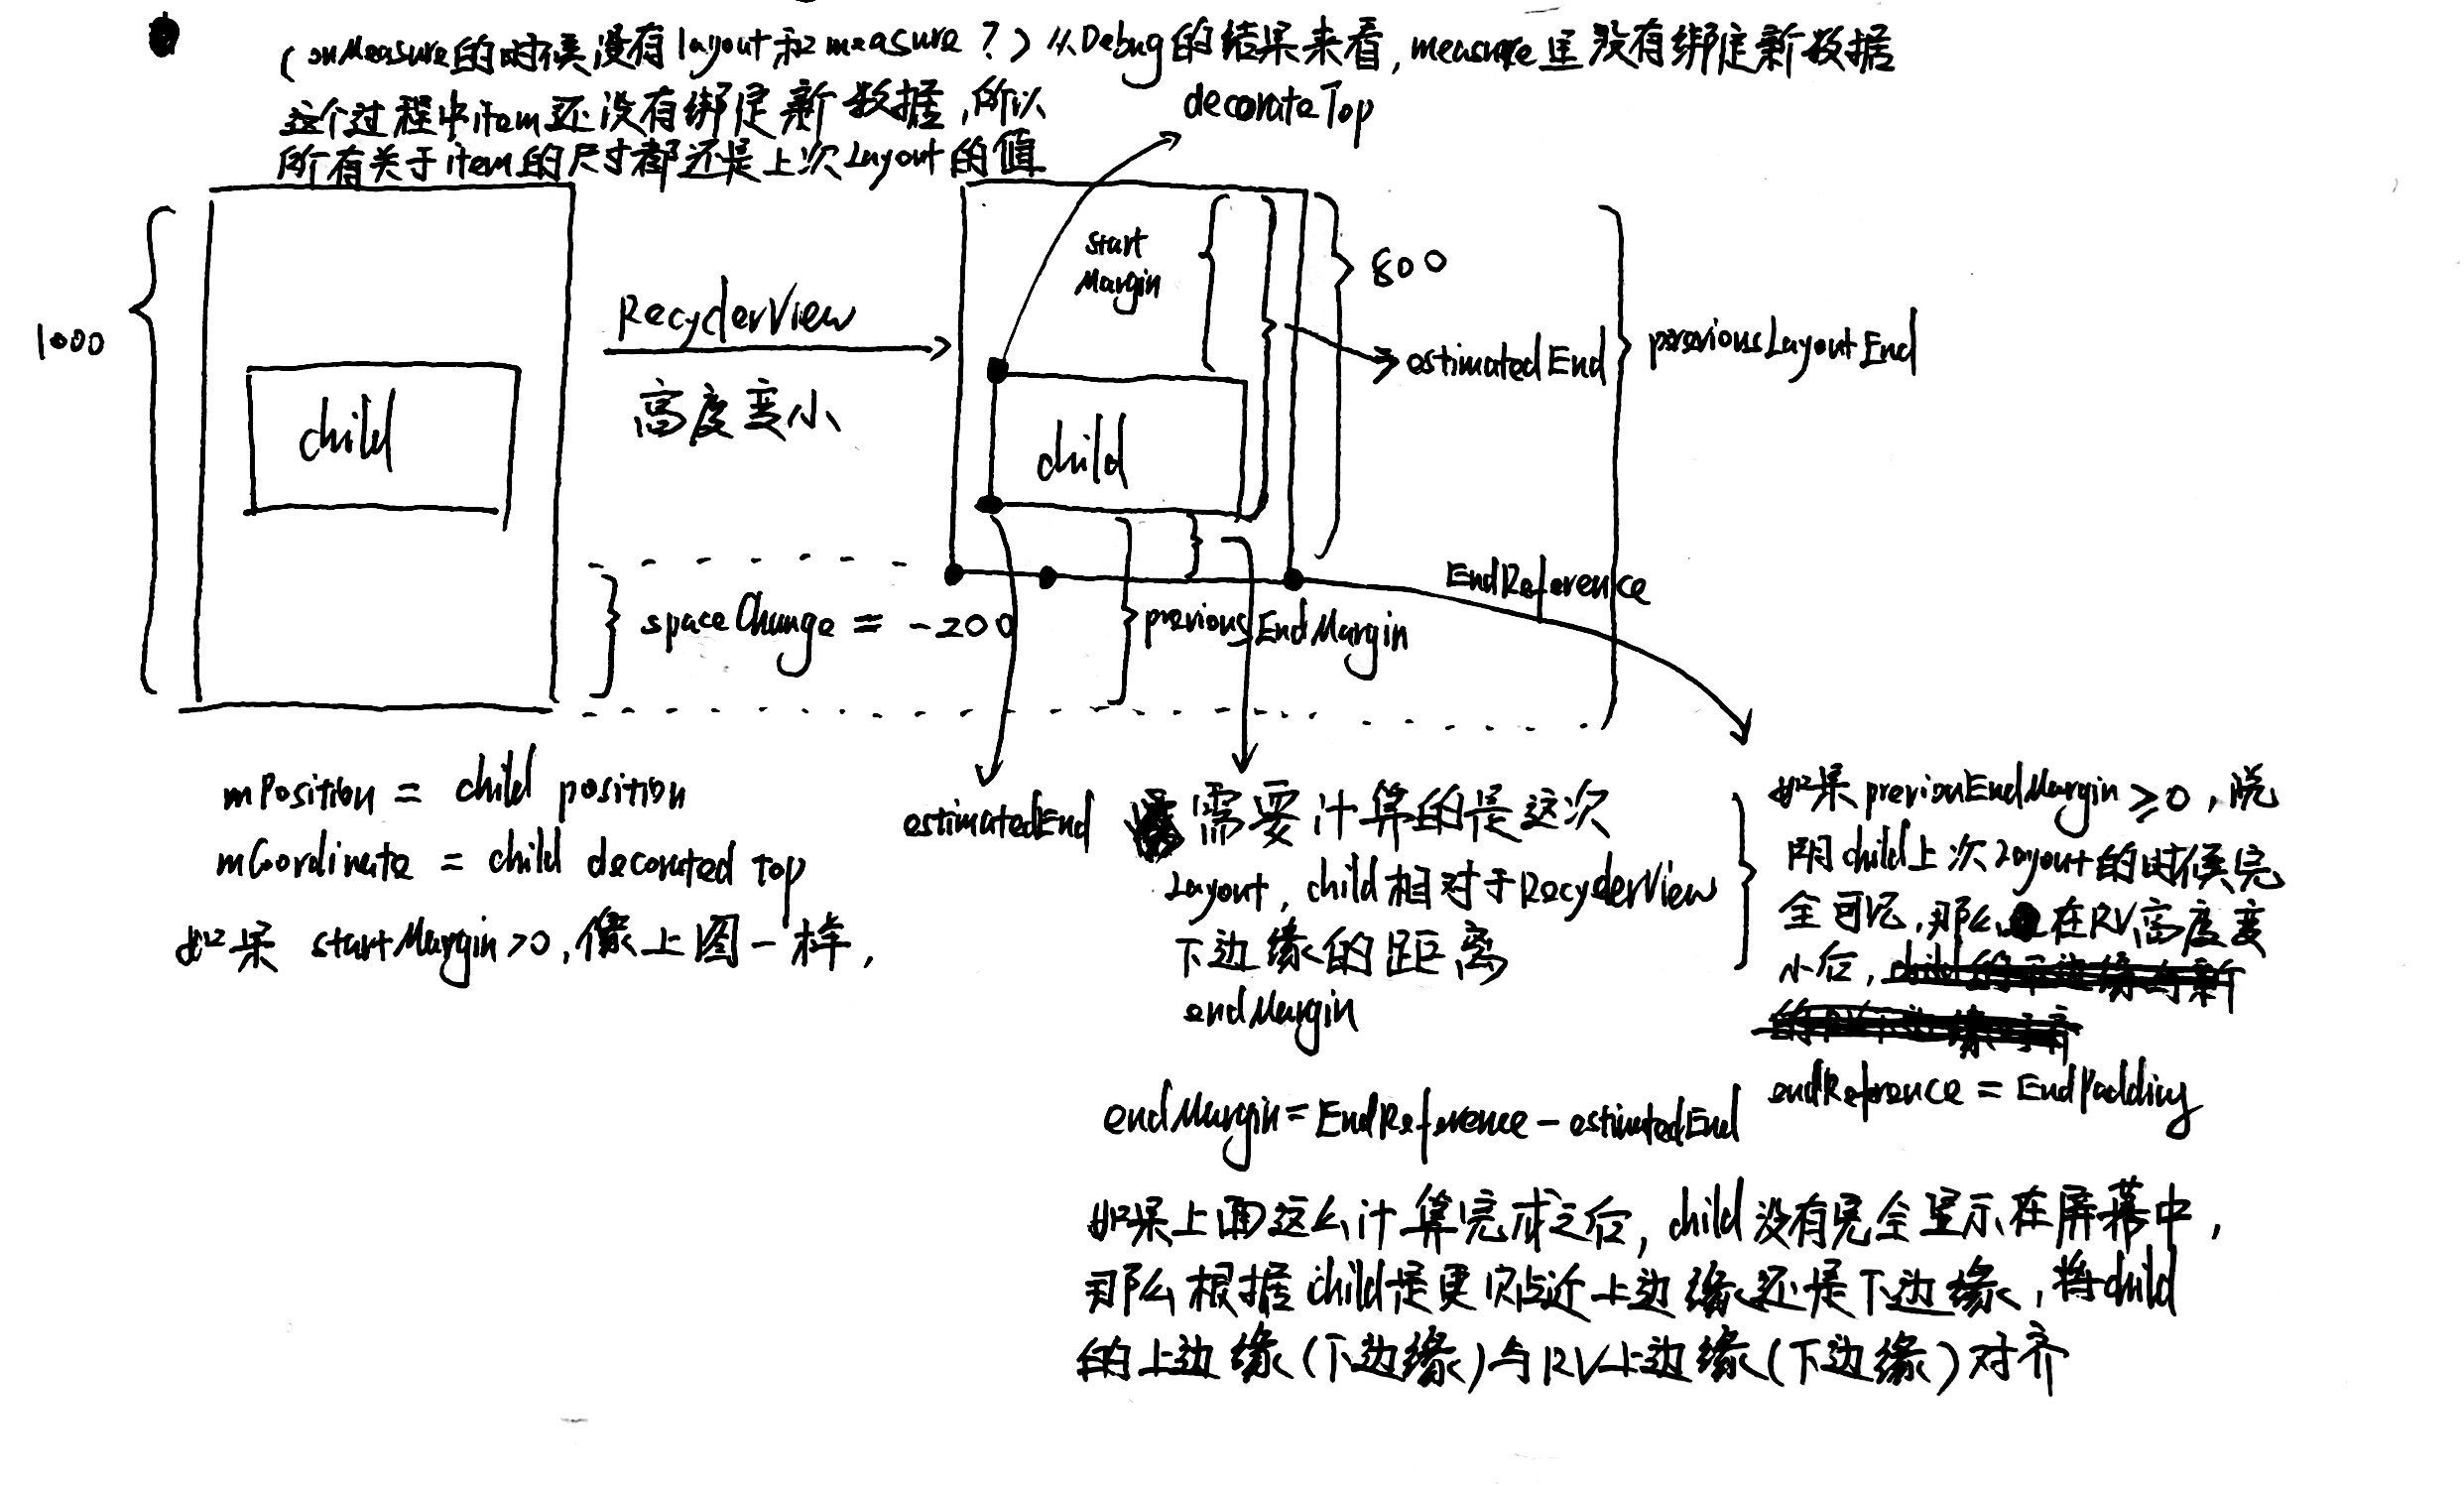 (onMeasure的时候没有layout和measure？)从Debug的结果来看,measure里没有绑定新数据
这个过程中item还没有绑定新数据,所以
所有关于item的尺寸都还是上次Layout的值
decorateTop
1000
child
RecyclerView
高度变小
start
Margin
child
800
estimatedEnd
previousLayoutEnd
EndReference
spaceChange = -200
previousEndMargin
mPosition = child position
mCoordinate = child decorated top
如果 startMargin>0,像上图一样,
estimatedEnd
需要计算的是这次
Layout, child相对于RecyclerView
下边缘的距离
endMargin
endMargin=EndReference-estimatedEnd
如果previousEndMargin≥0,说
明child上次Layout的时候完
全可见,那么在RV高度变
小后,
endReference = EndPadding
如果上面这么计算完成之后, child没有完全显示在屏幕中,
那么根据child是更贴近上边缘还是下边缘,将child
的上边缘(下边缘)与RV上边缘(下边缘)对齐